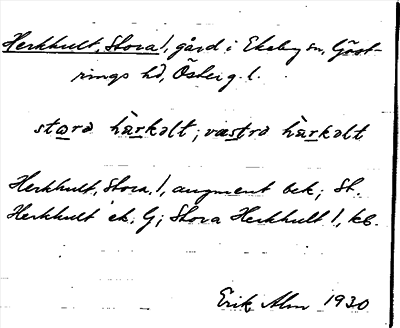 Herkhult, Stora 1, gård i Ekeby sn, Göst-
rings hd, Österg l.
stora hàrkəlt; væstrə hàrkəlt
Herkhult, Stora, 1, augment bek; St.
Herkhult ek. G; Stora Herkhult 1, kb.
Erik Alm 1930